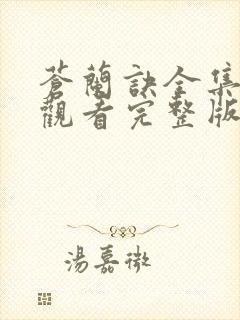 蒼蘭訣全集
觀看完整版
湯嘉微